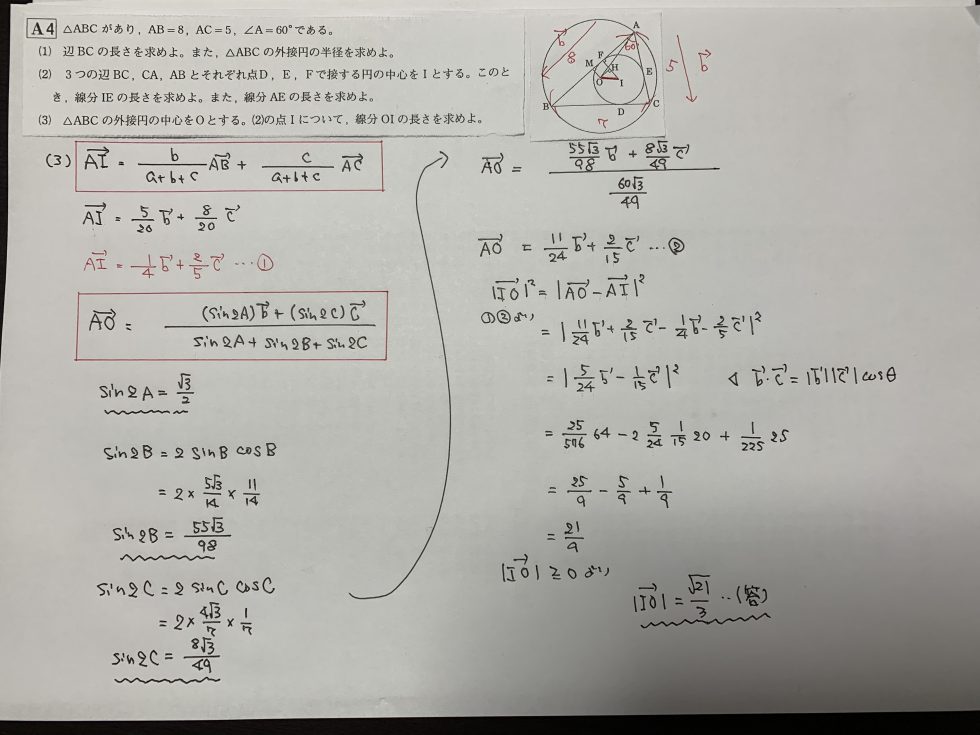 A4 △ABCがあり，AB＝8，AC＝5，∠A＝60°である。
(1) 辺BCの長さを求めよ。また，△ABCの外接円の半径を求めよ。
(2) 3つの辺BC，CA，ABとそれぞれ点D，E，Fで接する円の中心をIとする。このと
き，線分IEの長さを求めよ。また，線分AEの長さを求めよ。
(3) △ABCの外接円の中心をOとする。(2)の点Iについて，線分OIの長さを求めよ。
A
60°
b→
8
F
M
H
O
I
E
B
D
C
7
5
b→
(3) AI→ = b/(a+b+c) AB→ + c/(a+b+c) AC→
AI→ = 5/20 b→ + 8/20 c→
AI→ = 1/4 b→ + 2/5 c→ …①
AO→ = ((sin2A)b→ + (sin2C)c→)/(sin2A + sin2B + sin2C)
sin2A = √3/2
sin2B = 2 sinB cosB
= 2 × 5√3/14 × 11/14
sin2B = 55√3/98
sin2C = 2 sinC cosC
= 2 × 4√3/7 × 1/7
sin2C = 8√3/49
AO→ = (55√3/98 b→ + 8√3/49 c→)/(60√3/49)
AO→ = 11/24 b→ + 2/15 c→ …②
|IO→|² = |AO→ − AI→|²
①②より
= |11/24 b→ + 2/15 c→ − 1/4 b→ − 2/5 c→|²
= |5/24 b→ − 1/15 c→|² ◁ b→·c→ = |b→||c→|cosθ
= 25/576 64 − 2 5/24 1/15 20 + 1/225 25
= 25/9 − 5/9 + 1/9
= 21/9
|IO→| ≧ 0 より
|IO→| = √21/3 …(答)